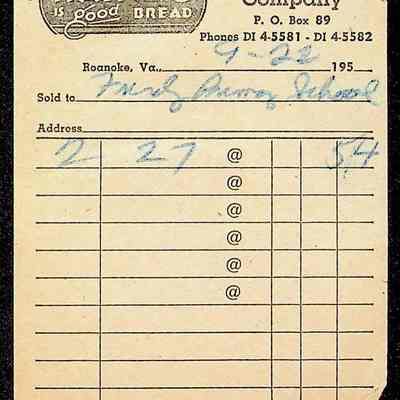 Company
is good BREAD
P. O. Box 89
Phones DI 4-5581 - DI 4-5582
Roanoke, Va., 9-22 195
Sold to School
Address
2 27 @ 54
@
@
@
@
@